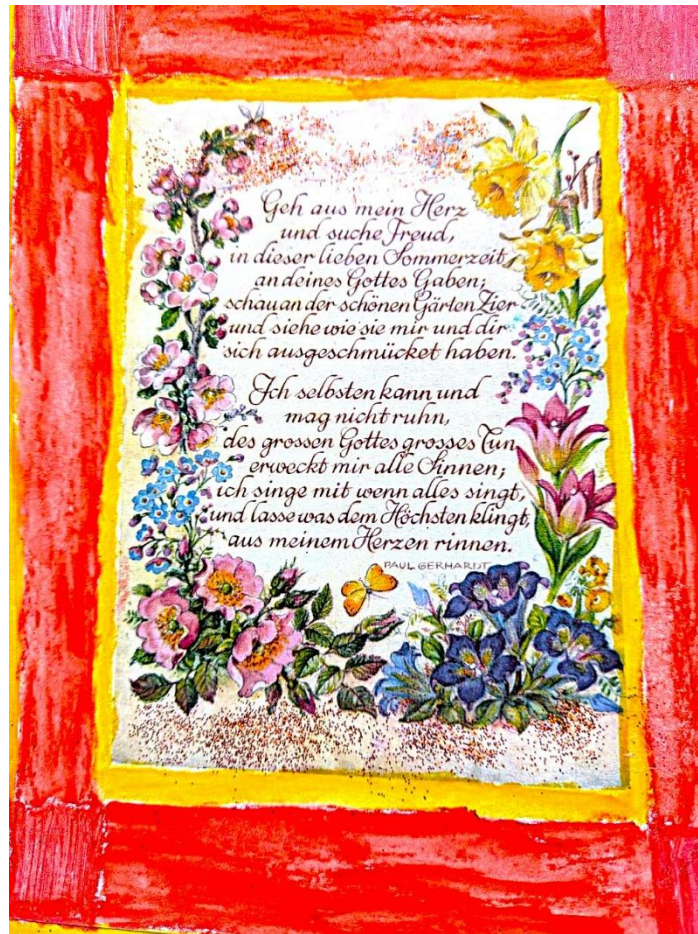 Geh aus mein Herz
und suche Freud,
in dieser lieben Sommerzeit,
an deines Gottes Gaben;
schau an der schönen Gärten Zier
und siehe wie sie mir und dir
sich ausgeschmücket haben.
Ich selbsten kann und
mag nicht ruhn,
des grossen Gottes grosses Tun
erweckt mir alle Sinnen;
ich singe mit wenn alles singt,
und lasse was dem Höchsten klingt,
aus meinem Herzen rinnen.
PAUL GERHARDT